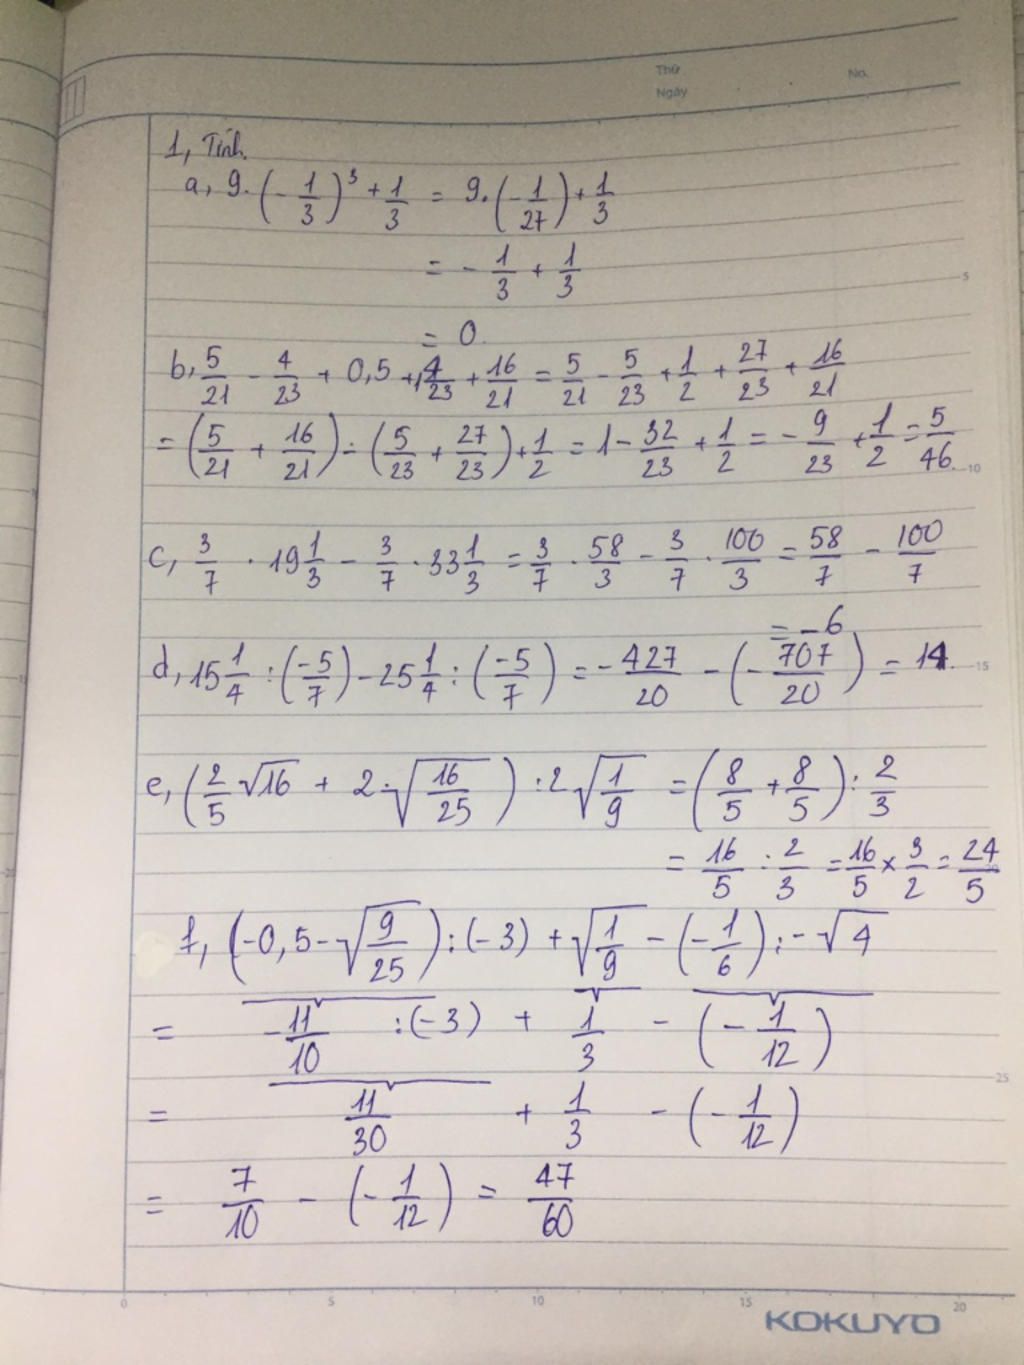 Thứ
No.
Ngày
1, Tính.
a, 9.(-1/3)³ + 1/3 = 9.(-1/27) + 1/3
= -1/3 + 1/3
= 0.
b, 5/21 - 4/23 + 0,5 + 4/23 + 16/21 = 5/21 - 5/23 + 1/2 + 27/23 + 16/21
= (5/21 + 16/21) - (5/23 + 27/23) + 1/2 = 1 - 32/23 + 1/2 = -9/23 + 1/2 = 5/46.
c, 3/7 . 19 1/3 - 3/7 . 33 1/3 = 3/7 . 58/3 - 3/7 . 100/3 = 58/7 - 100/7
= -6
d, 15 1/4 : (-5/7) - 25 1/4 : (-5/7) = -427/20 - (-707/20) = 14.
e, (2/5 √16 + 2.√(16/25)) : 2√(1/9) = (8/5 + 8/5) : 2/3
= 16/5 : 2/3 = 16/5 × 3/2 = 24/5
f, (-0,5 - √(9/25)) : (-3) + √(1/9) - (-1/6) : -√4
= -11/10 : (-3) + 1/3 - (-1/12)
= 11/30 + 1/3 - (-1/12)
= 7/10 - (-1/12) = 47/60
5
10
15
25
0 5 10 15 20
KOKUYO